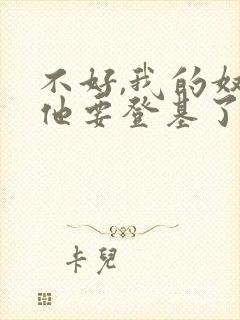 不好,我的奴
他要登基了
卡兒